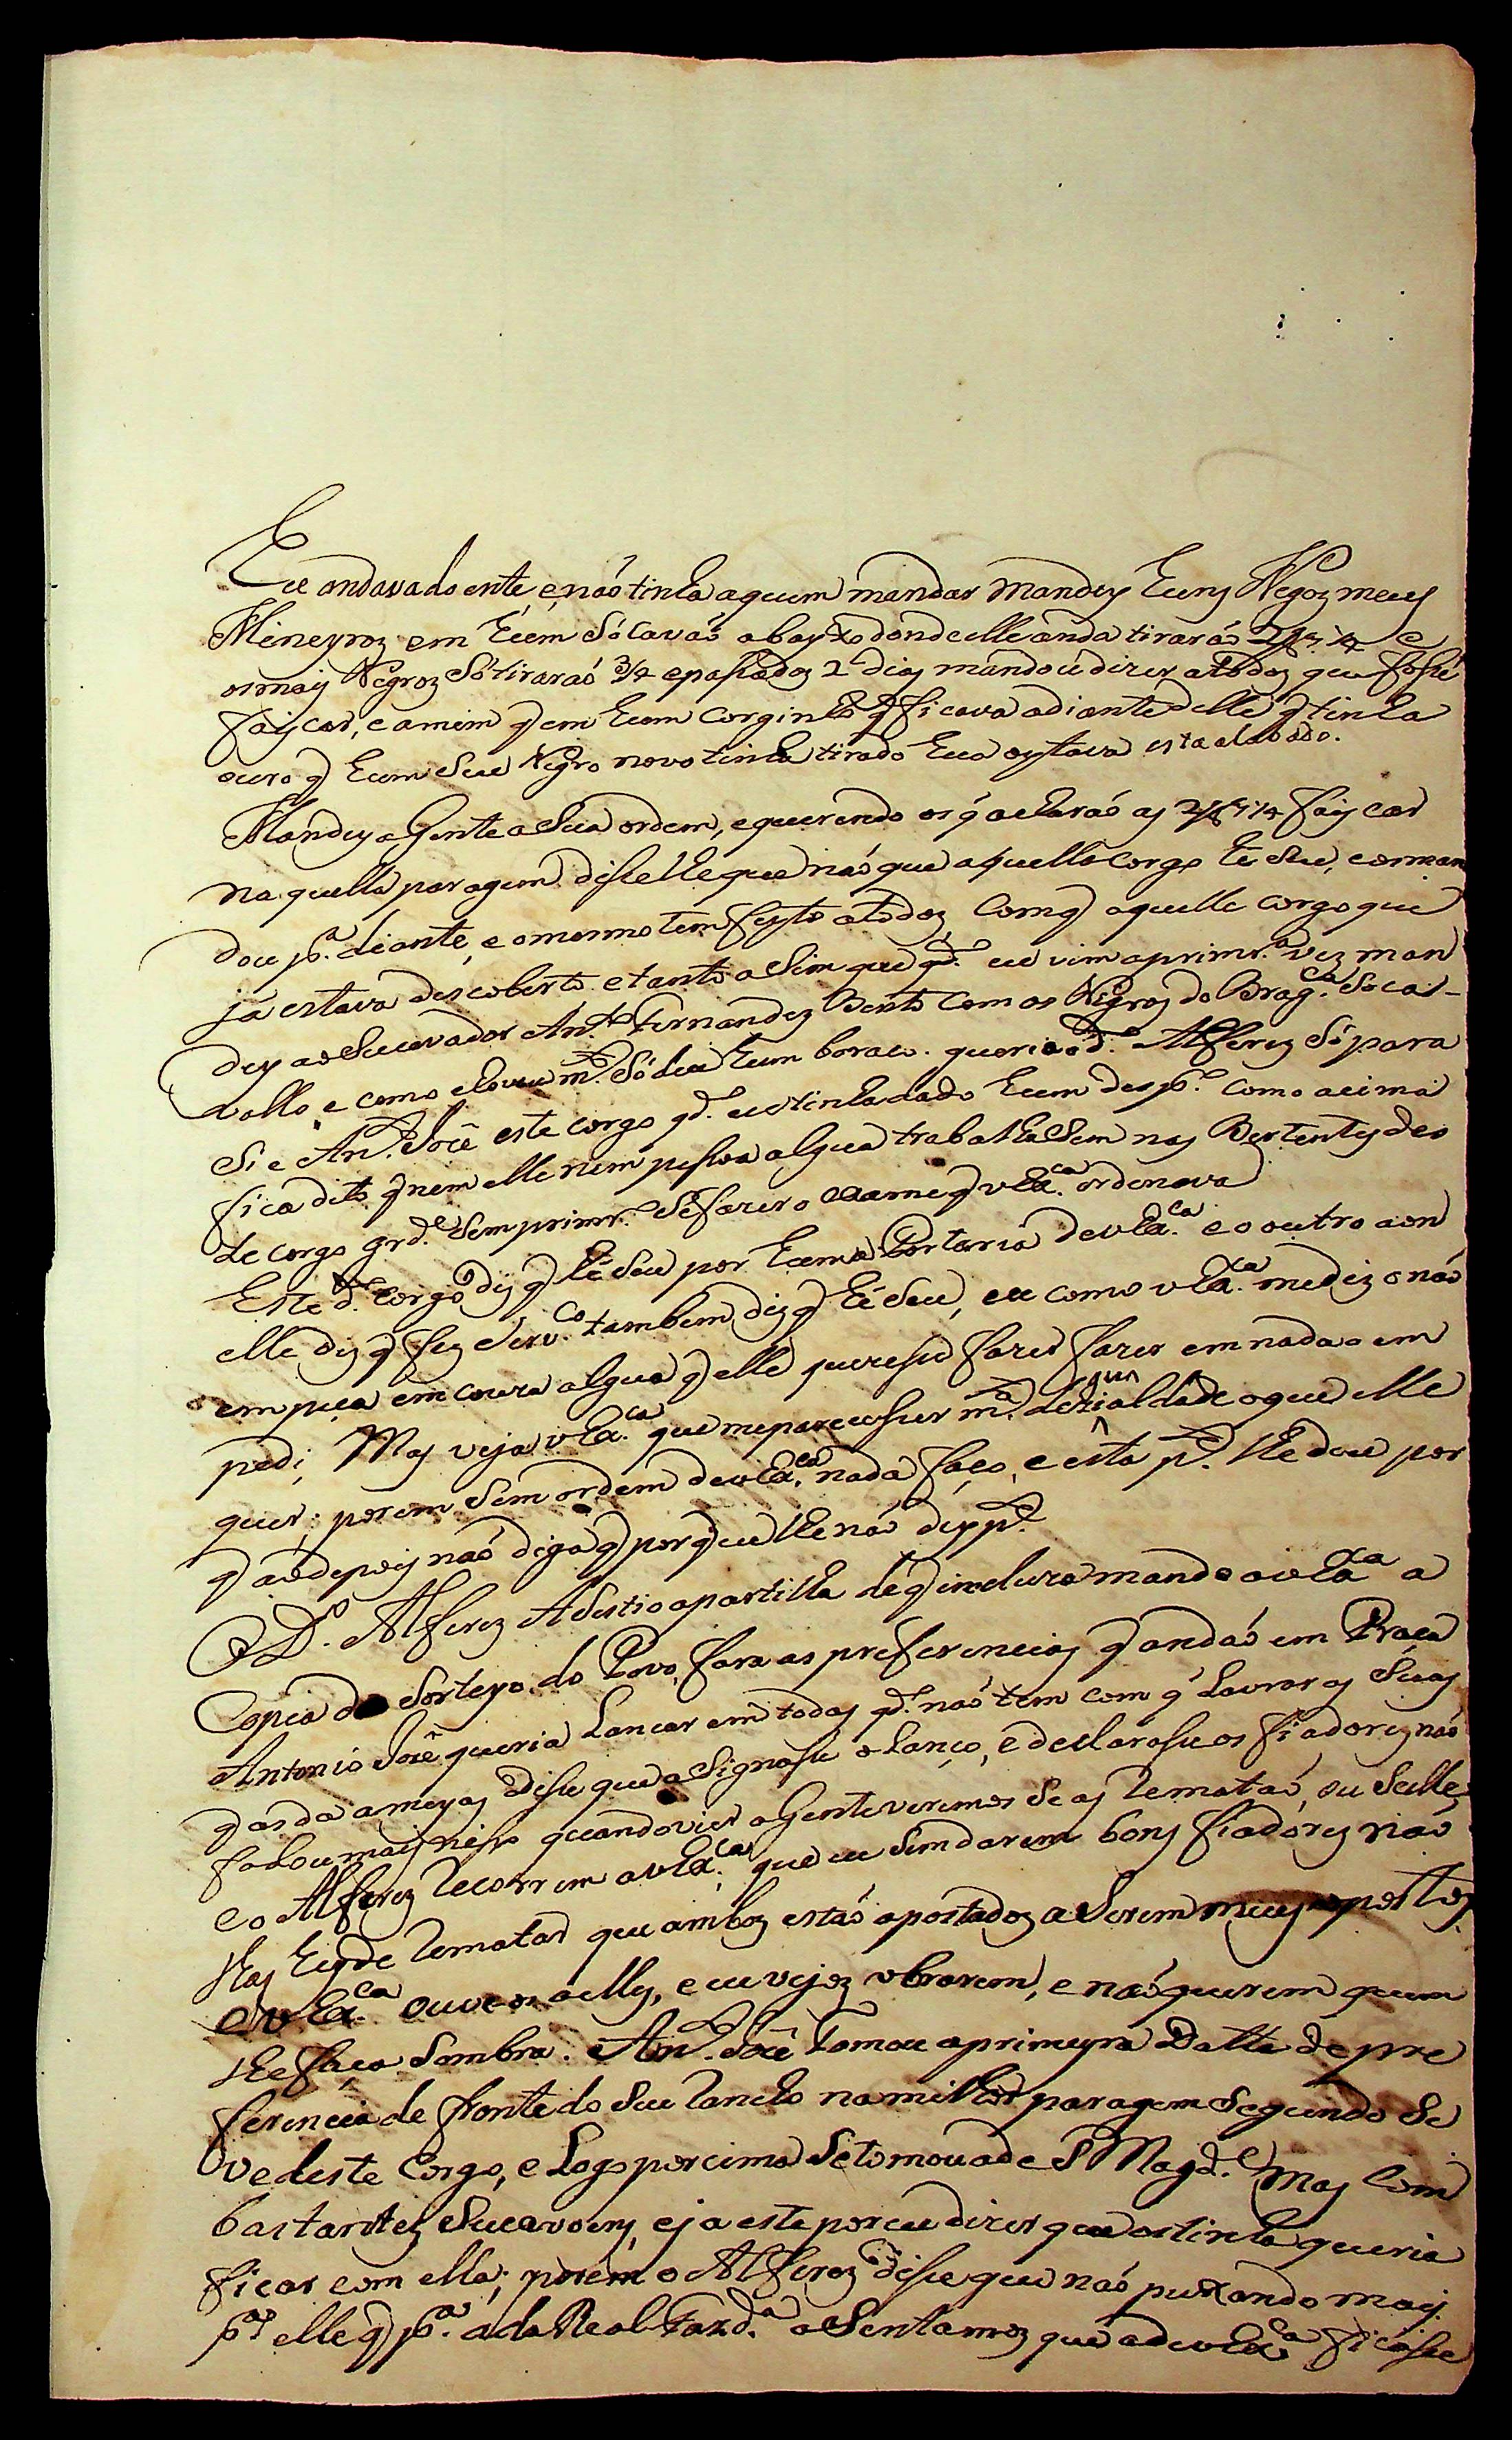 Eu andava doente, e não tinha a quem mandar mandey huns Negoz meus
Mineyroz em hum Socavão abayxo donde elle anda tirarão 2/8 1/4 e
os mais Negroz só tirarão 3/4 e passadoz 2 dias mandou dizer a todoz que fosse
faiscar, e a mim q em hum corginho q ficava adiante delle q tinha
ouro q hum seu Negro novo tinha tirado hua oytava esta
Mandey a Gente a Sua ordem, e querendo os q acharão as 2/8 1/4 faiscar
na quella paragem disse lhe que não que aquelle corgo he Seu, e os man
dou p.ª diante, e o mesmo tem feyto a todoz, Com q aquelle corgo que
ja estava descoberto e tanto aSim que qd.º eu vim a primr.ª vez man
dey ao Sucavador An.to Fernandez Bento Com os Negros do Brag.ça Soca-
vallo, e como choveu m.to Só deu hum boraco. queria o d.º Alferez Só para
Si e An.to Joze este corgo qd.º eu tinha dado hum desp.º como acima
fica dito q nem elle nem peSsoa algua trabalhaSem nas Vertentes des
te corgo grd.e Sem primr.º Se fazer o exame q vEx.ca ordenava
Este d.º Corgo diz q he Seu por huma Portaria de vEx.ca e o outro aon
elle diz q fez Serv.co tambem diz q he Seu, eu como vEx.ca me diz o não
empeça em couza algua q elle quizesse fazer fazer em nada o em
pedi, Mas veja vEx.ca que me parece ser m.ta dezigualdade o que elle
quer; porem Sem ordem de vEx.ca nada faço, e esta p.te lhe dou por
q ao depois não diga q porq eu lhe não dey p.te
O D.º Alferez AScistio a partilha de q incluza mando a vEx.ca a
Copia do Sorteyo do Povo, fora as preferencias q andão em Praça
Antonio Joze queria Lancar em todas qd.º não tem com q Lavrar as Suas
q as da a meyas disse que aSignasse o Lanço, e declarasse os fiadores não
falou mais nisso quando vier a Gente veremos Se as Rematão, ou Se elle
e o Alferez Recorrem a vEx.ca que eu Sem darem bons fiadores não
lhas hey de Rematar que amboz estão apostadoz a Serem meus opostoz
e vEx.ca ouve os a elles, e eu vejoz obrarem, e não querem quem
lhe faça Sombra. An.to Joze tomou a primeyra Datta de pre
ferencia de fronte do Seu Rancho na milhor paragem Segundo Se
ve deste Corgo, e Logo por cima Se tomou a de S Magd.e Mas Com
bastantes Sucavoens, e ja este por eu dizer que os tinha queria
ficar com ella; porem o Alferez disse que não puxando mais
p.ª elle q p.ª a da Real Fazd.ª aSentamoz que a de vEx.ca ficasse